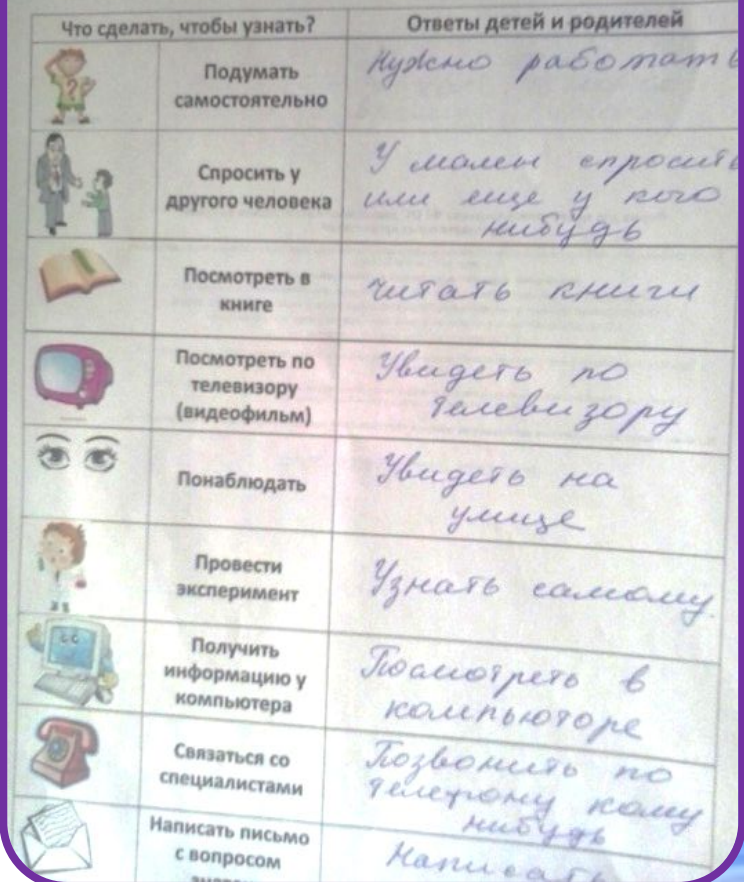 Что сделать, чтобы узнать?
Ответы детей и родителей
Подумать
самостоятельно
Нужно работать
Спросить у
другого человека
У мамы спросить
или еще у кого
нибудь
Посмотреть в
книге
читать книги
Посмотреть по
телевизору
(видеофильм)
Увидеть по
телевизору
Понаблюдать
Увидеть на
улице
Провести
эксперимент
Узнать самому
Получить
информацию у
компьютера
Посмотреть в
компьюторе
Связаться со
специалистами
Позвонить по
телефону кому
нибудь
Написать письмо
с вопросом
Написать